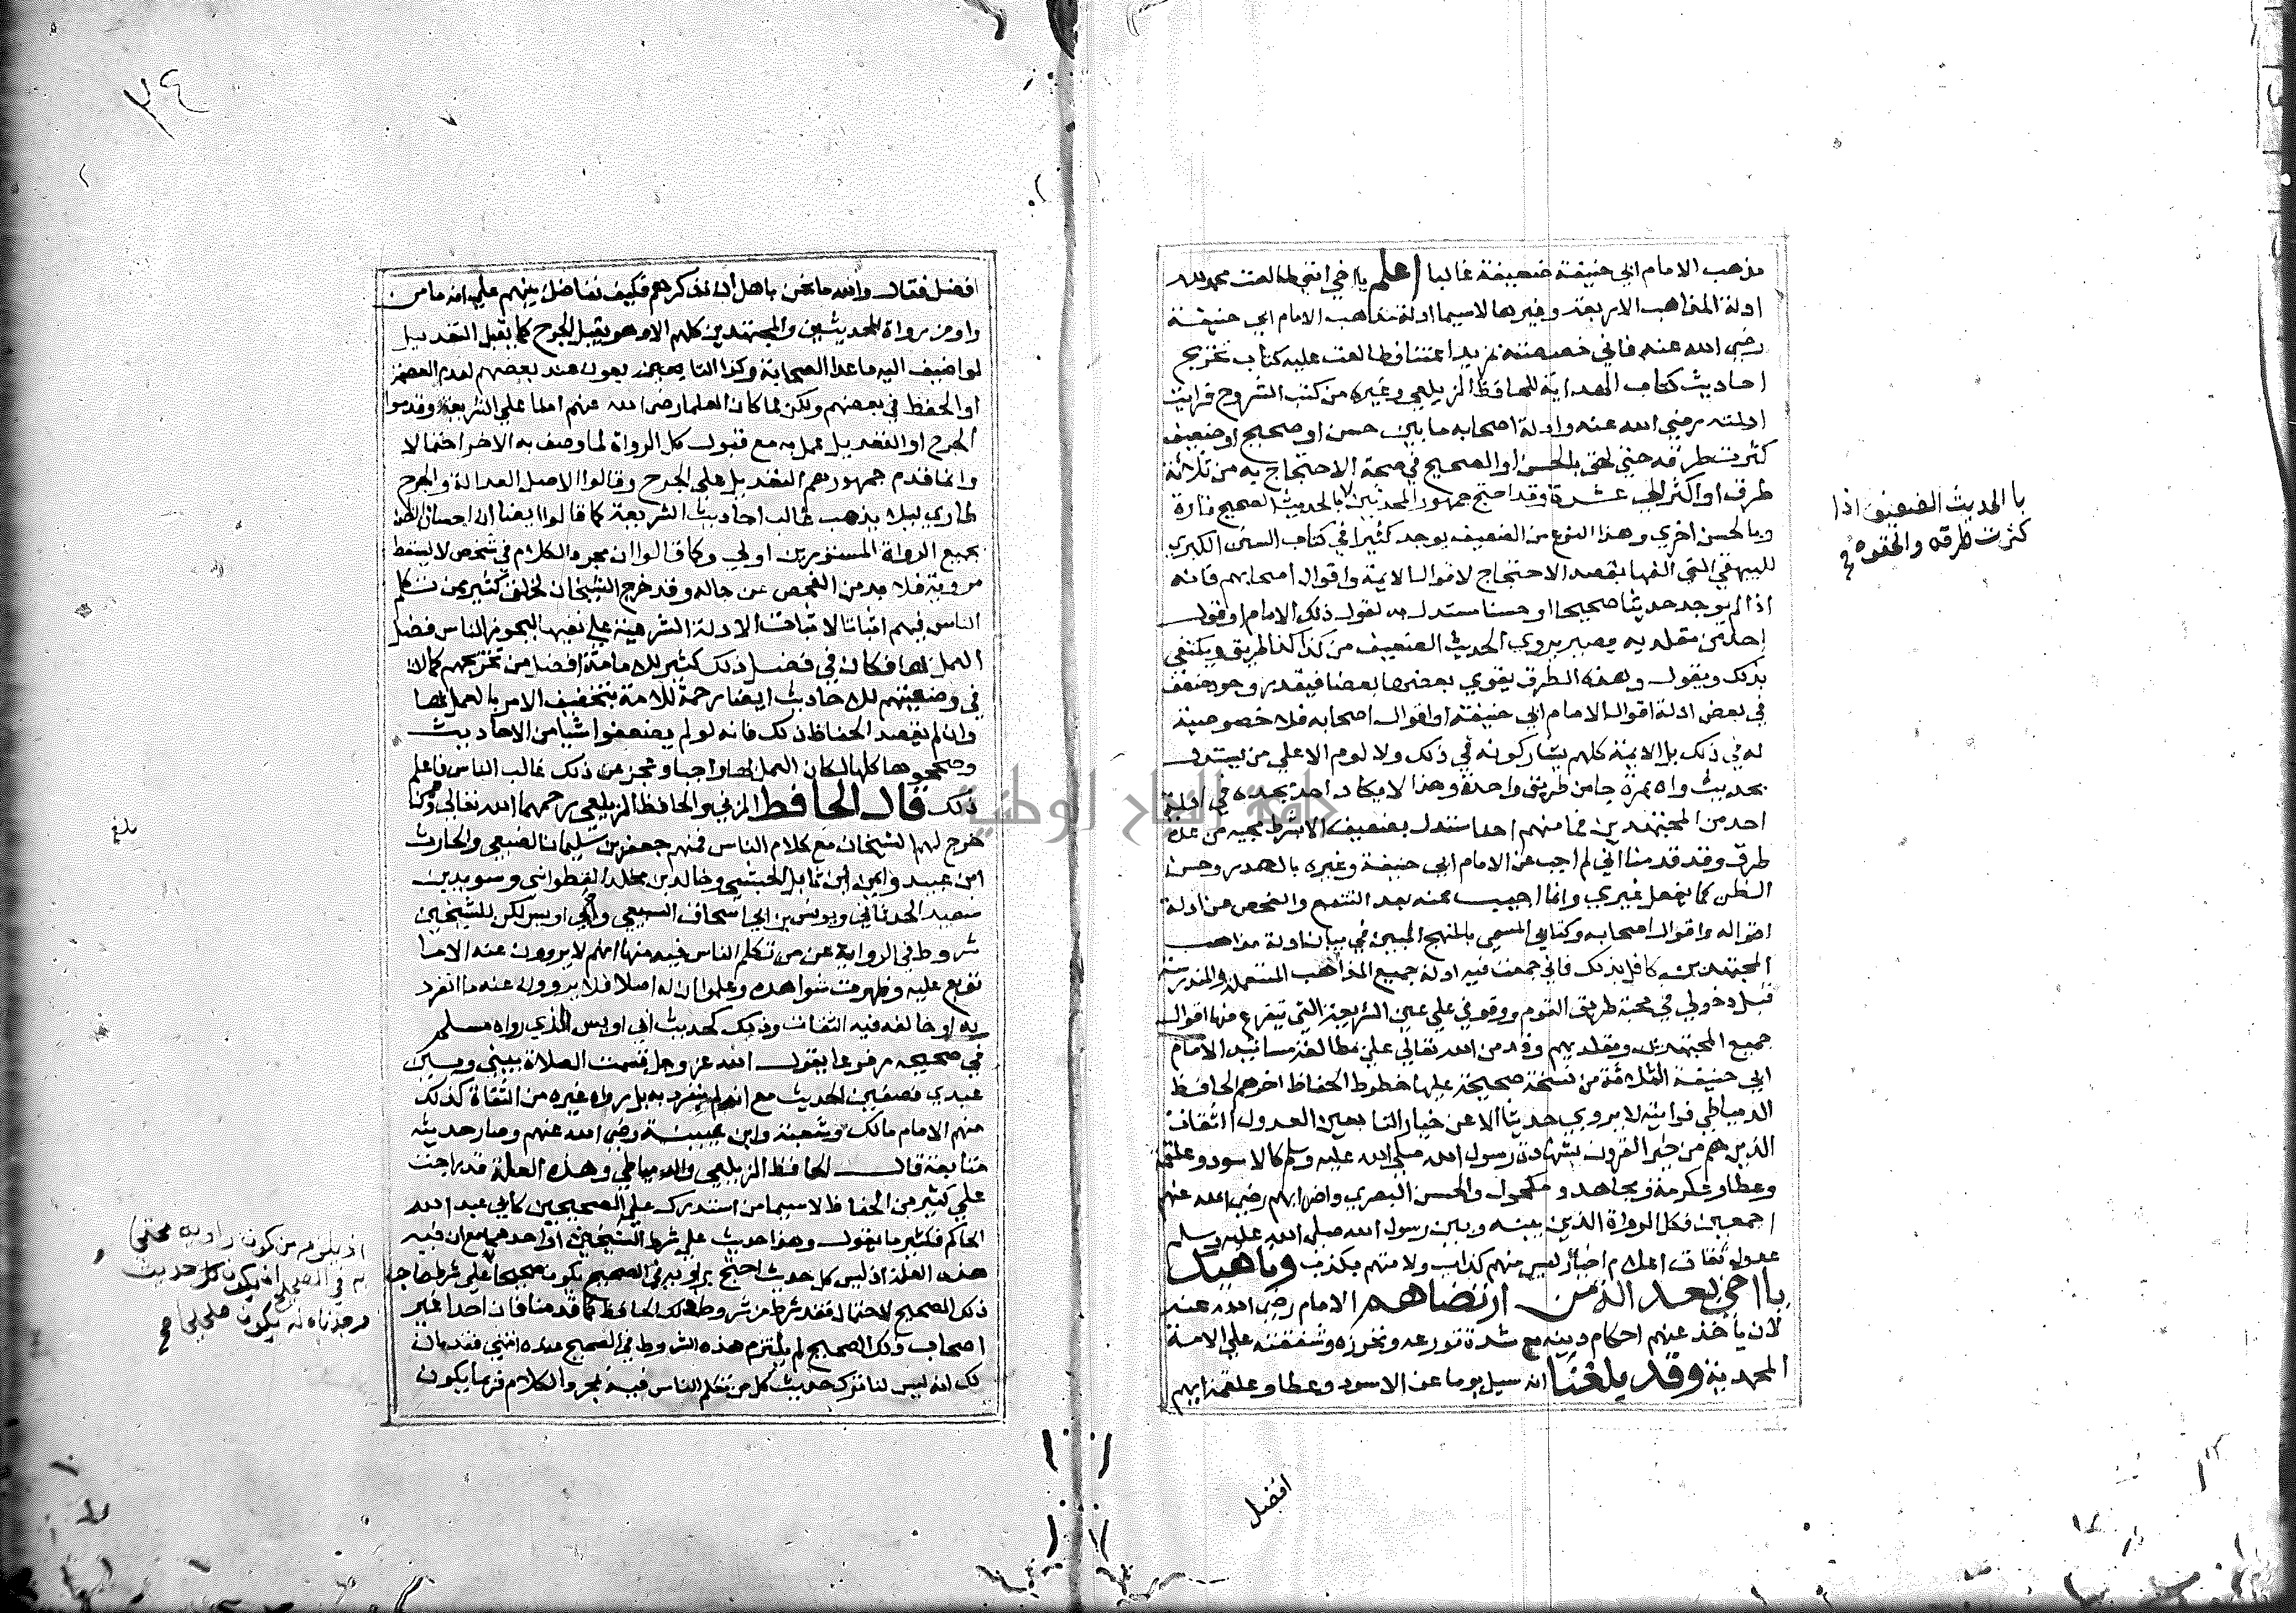 مذهب الامام ابي حنيفة ضعيفة غالبا اعلم يا اخي انني طالعت بحمد الله
ادلة المذاهب الاربعة وغيرها لاسيما ادلة مذاهب الامام ابي حنيفة
رضي الله عنه فاني خصصته بمزيد اعتنا فطالعت عليه كتاب تخريج
احاديث كتاب الهداية للحافظ الزيلعي وغيره من كتب الشروح فرايت
ادلته رضي الله عنه وادلة اصحابه ما بين حسن او صحيح او ضعيف
كثرت طرقه حتي لحق بالحسن او الصحيح في صحة الاحتجاج به من ثلاثة
طرق او اكثر الي عشرة وقد احتج جمهور المحدثين بالحديث الصحيح تارة
وبالحسن اخري وهذا النوع من الضعيف يوجد كثيرا في كتاب السنن الكبري
للبيهقي التي الفها بقصد الاحتجاج لاقوال الايمة واقوال اصحابهم فانه
اذا لم يوجد حديثا صحيحا او حسنا يستدل به لقول ذلك الامام او قول
احد من مقلديه يصير يروي الحديث الضعيف من كذا كذا طريق ويكتفي
بذلك ويقول وهذه الطرق يقوي بعضها بعضا فبتقدير وجود ضعف
في بعض ادلة اقوال الامام ابي حنيفة او اقوال اصحابه فلا خصوصية
له في ذلك بل الايمة كلهم يشاركونه في ذلك ولا لوم الا علي من يستدل
بحديث واه بمرة جا من طريق واحدة وهذا لا يكاد احد يجده في ادلة
احد من المجتهدين فما منهم احد استدل بضعيف الا بشرط مجيه من عدة
طرق وقد قدمنا اني لم اجب عن الامام ابي حنيفة وغيره بالصدر وحسن
الظن كما يفعل غيري وانما اجيب عنه بعد التتبع والفحص عن ادلة
اقواله واقوال اصحابه وكتابي المسمي بالمنهج المبين في بيان ادلة مذاهب
المجتهدين كافل بذلك فاني جمعت فيه ادلة جميع المذاهب المستعملة والمندرسة
قبل دخولي في محبة طريق القوم ووقوفي علي عين الشريعة التي يتفرع منها اقوال
جميع المجتهدين ومقلديهم وقد من الله تعالي علي بمطالعة مسانيد الامام
ابي حنيفة الثلاثة من نسخة صحيحة عليها خطوط الحفاظ اخرهم الحافظ
الدمياطي فرايته لا يروي حديثا الا عن خيار التابعين العدول الثقات
الذين هم من خير القرون بشهادة رسول الله صلي الله عليه وسلم كالاسود وعلقمة
وعطا وعكرمة ومجاهد ومكحول والحسن البصري واضرابهم رضي الله عنهم
اجمعين فكل الرواة الذين بينه وبين رسول الله صلي الله عليه وسلم
عدول ثقات اعلام اخيار ليس منهم كذاب ولا متهم بكذب وناهيك
يا اخي بعدالة من ارتضاهم الامام رضي الله عنه
لان ياخذ عنهم احكام دينه مع شدة تورعه وتحرزه وشفقته علي الامة
المحمدية وقد بلغنا انه سيل يوما عن الاسود وعطا وعلقمة ايهم
افضل
بالحديث الضعيف اذا
كثرت طرقه والحقوه
٣٤
افضل فقال والله ما نحن باهل ان نذكرهم فكيف نفاضل بينهم علي انه ما من
راو من رواة المحدثين والمجتهدين كلهم الا وهو يقبل الجرح كما يقبل التعديل
لو اضيف اليه ما عدا الصحابة وكذا التابعين عند بعضهم لعدم العصمة
او الحفظ في بعضهم ولكن لما كان العلما رضي الله عنهم امنا علي الشريعة وقدموا
الجرح او التعديل عمل به مع قبول كل الرواة لما وصف به الاخر احتمالا
وانما قدم جمهورهم التعديل علي الجرح وقالوا الاصل العدالة والجرح
طاري ليلا يذهب غالب احاديث الشريعة كما قالوا ايضا ان احسان الظن
بجميع الرواة المستورين اولي وكما قالوا ان مجرد الكلام في شخص لا يسقط
مرويه فلا بد من الفحص عن حاله وقد خرج الشيخان لخلق كثير ممن تكلم
الناس فيهم اثباتا لاثبات الادلة الشرعية علي نفيها ليحوز الناس فضل
العمل بها فكان في فضل ذلك كثير للامة افضل من تجريحهم كما ان
في تضعيفهم للاحاديث ايضا رحمة للامة بتخفيف الامر بالعمل بها
وان لم يقصد الحفاظ ذلك فانه لو لم يضعفوا شيا من الاحاديث
وصححوها كلها لكان العمل بها واجبا وعجز عن ذلك غالب الناس فاعلم
ذلك قال الحافظ المزني والحافظ الزيلعي رحمهما الله تعالي وممن
خرج لهم الشيخان مع كلام الناس فيهم جعفر بن سليمان الضبعي والحارث
ابن عبيد وايمن ابن نابل الحبشي وخالد بن مخلد القطواني وسويد بن
سعيد الحدثاني ويونس بن ابي اسحاق السبيعي وابي اويس لكن للشيخين
شروط في الرواية عن من تكلم الناس فيه منها انهم لا يروون عنه الا ما
توبع عليه وظهرت شواهده وعلموا ان له اصلا فلا يروون عنه ما انفرد
به او خالفه فيه الثقات وذلك كحديث ابي اويس الذي رواه مسلم
في صحيحه مرفوعا يقول الله عز وجل قسمت الصلاة بيني وبين
عبدي نصفين الحديث مع انه لم ينفرد به بل رواه غيره من الثقاة كذلك
منهم الامام مالك وشعبة وابن عيينة رضي الله عنهم وصار حديثه
متابعة قال الحافظ الزيلعي والدمياطي وهذه العلة قد راجت
علي كثير من الحفاظ لاسيما من استدرك علي الصحيحين كابي عبد الله
الحاكم فكثيرا ما يقول وهذا حديث علي شرط الشيخين او احدهما مع ان فيه
هذه العلة اذ ليس كل حديث احتج براويه في الصحيح يكون صحيحا علي شرط صاحب
ذلك الصحيح لاحتمال فقد شرط من شروط ذلك الحافظ كما قدمنا فان احدا غير
اصحاب ذلك الصحيح لم يلتزم هذه الشروط في الصحيح عنده انتهي فقد بان
لك انه ليس لنا ترك حديث كل من تكلم الناس فيه بمجرد الكلام فربما يكون
بلغ
اذ يلزم من كون راويه محتج
به في الصحيح ان يكون كل حديث